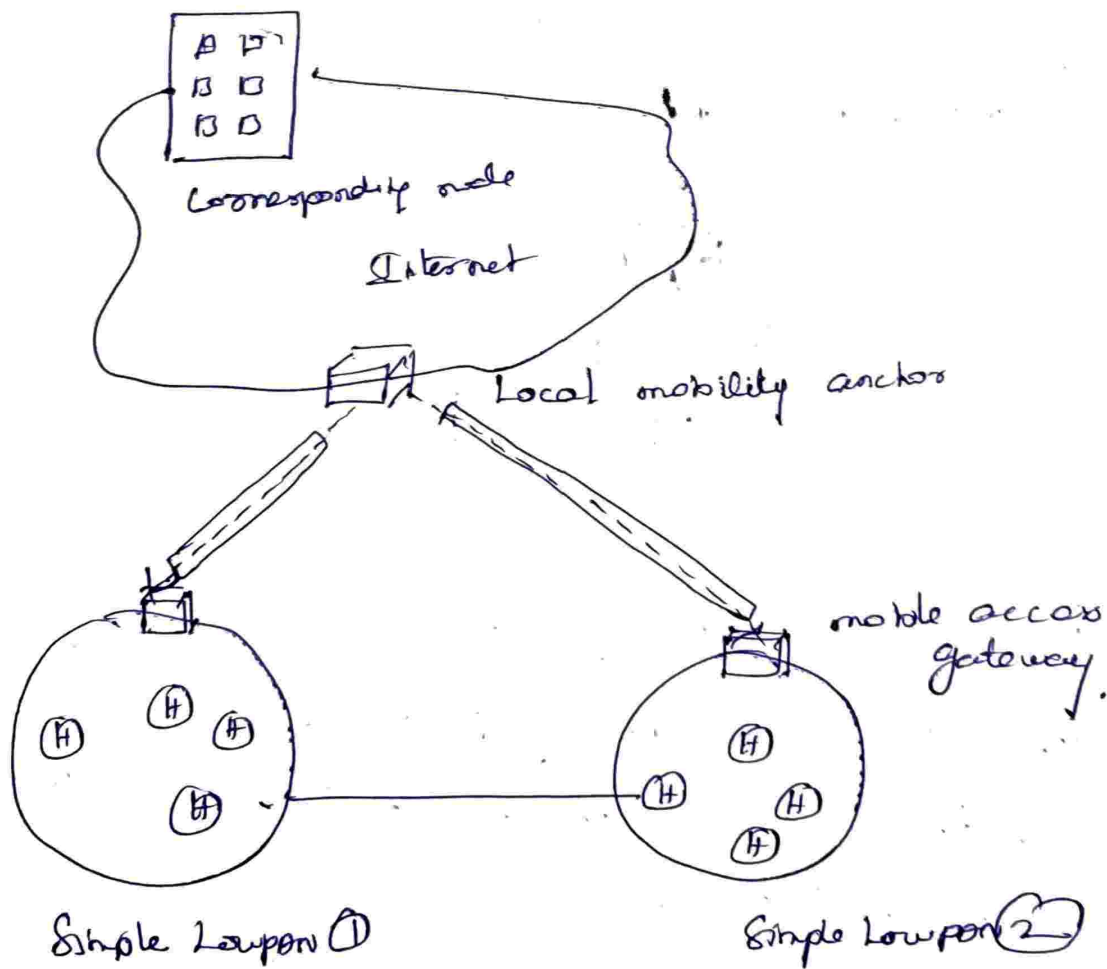 Corresponding node
Internet
Local mobility anchor
mobile access
gateway.
H
H
H
H
H
H
H
H
Simple Lowpan ①
Simple Lowpan ②